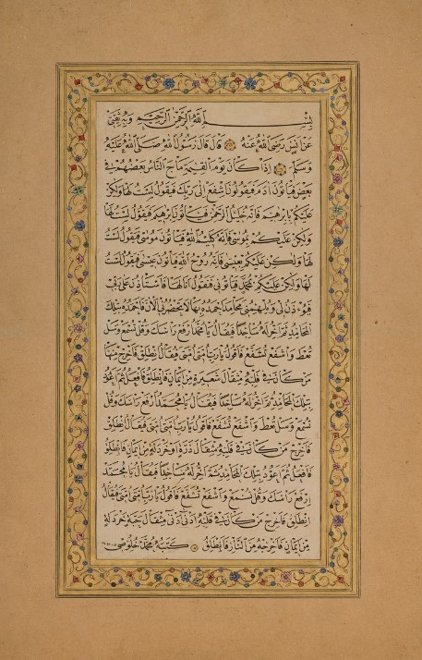 بسم الله الرحمن الرحيم وبه ثقتي
عن انس رضي الله عنه قال قال رسول الله صلى الله عليه
وسلم اذا كان يوم القيمة ماج الناس بعضهم في
بعض فيأتون ادم فيقولون اشفع الى ربك فيقول لست لها ولكن
عليكم بابرهيم فانه خليل الرحمن فيأتون ابرهيم فيقول لست لها
ولكن عليكم بموسى فانه كليم الله فيأتون موسى فيقول لست
لها ولكن عليكم بعيسى فانه روح الله فيأتون عيسى فيقول لست
لها ولكن عليكم بمحمد فيأتوني فاقول انا لها فاستأذن على ربي
فيؤذن لي ويلهمني محامد احمده بها لا تحضرني الان فاحمده بتلك
المحامد ثم اخر له ساجدا فيقال يا محمد ارفع رأسك وقل تسمع وسل
تعط واشفع تشفع فاقول يا رب امتي امتي فيقال انطلق فاخرج منها
من كان في قلبه مثقال شعيرة من ايمان فانطلق فافعل ثم اعود
بتلك المحامد ثم اخر له ساجدا فيقال يا محمد ارفع رأسك وقل
تسمع وسل تعط واشفع تشفع فاقول يا رب امتي امتي فيقال انطلق
فاخرج من كان في قلبه مثقال ذرة او خردلة من ايمان فانطلق
فافعل ثم اعود بتلك المحامد ثم اخر له ساجدا فيقال يا محمد
ارفع رأسك وقل تسمع واشفع تشفع فاقول يا رب امتي امتي فيقال
انطلق فاخرج من كان في قلبه ادنى ادنى مثقال حبة خردلة
من ايمان فاخرجه من النار فانطلق كتبه محمد خلوصي